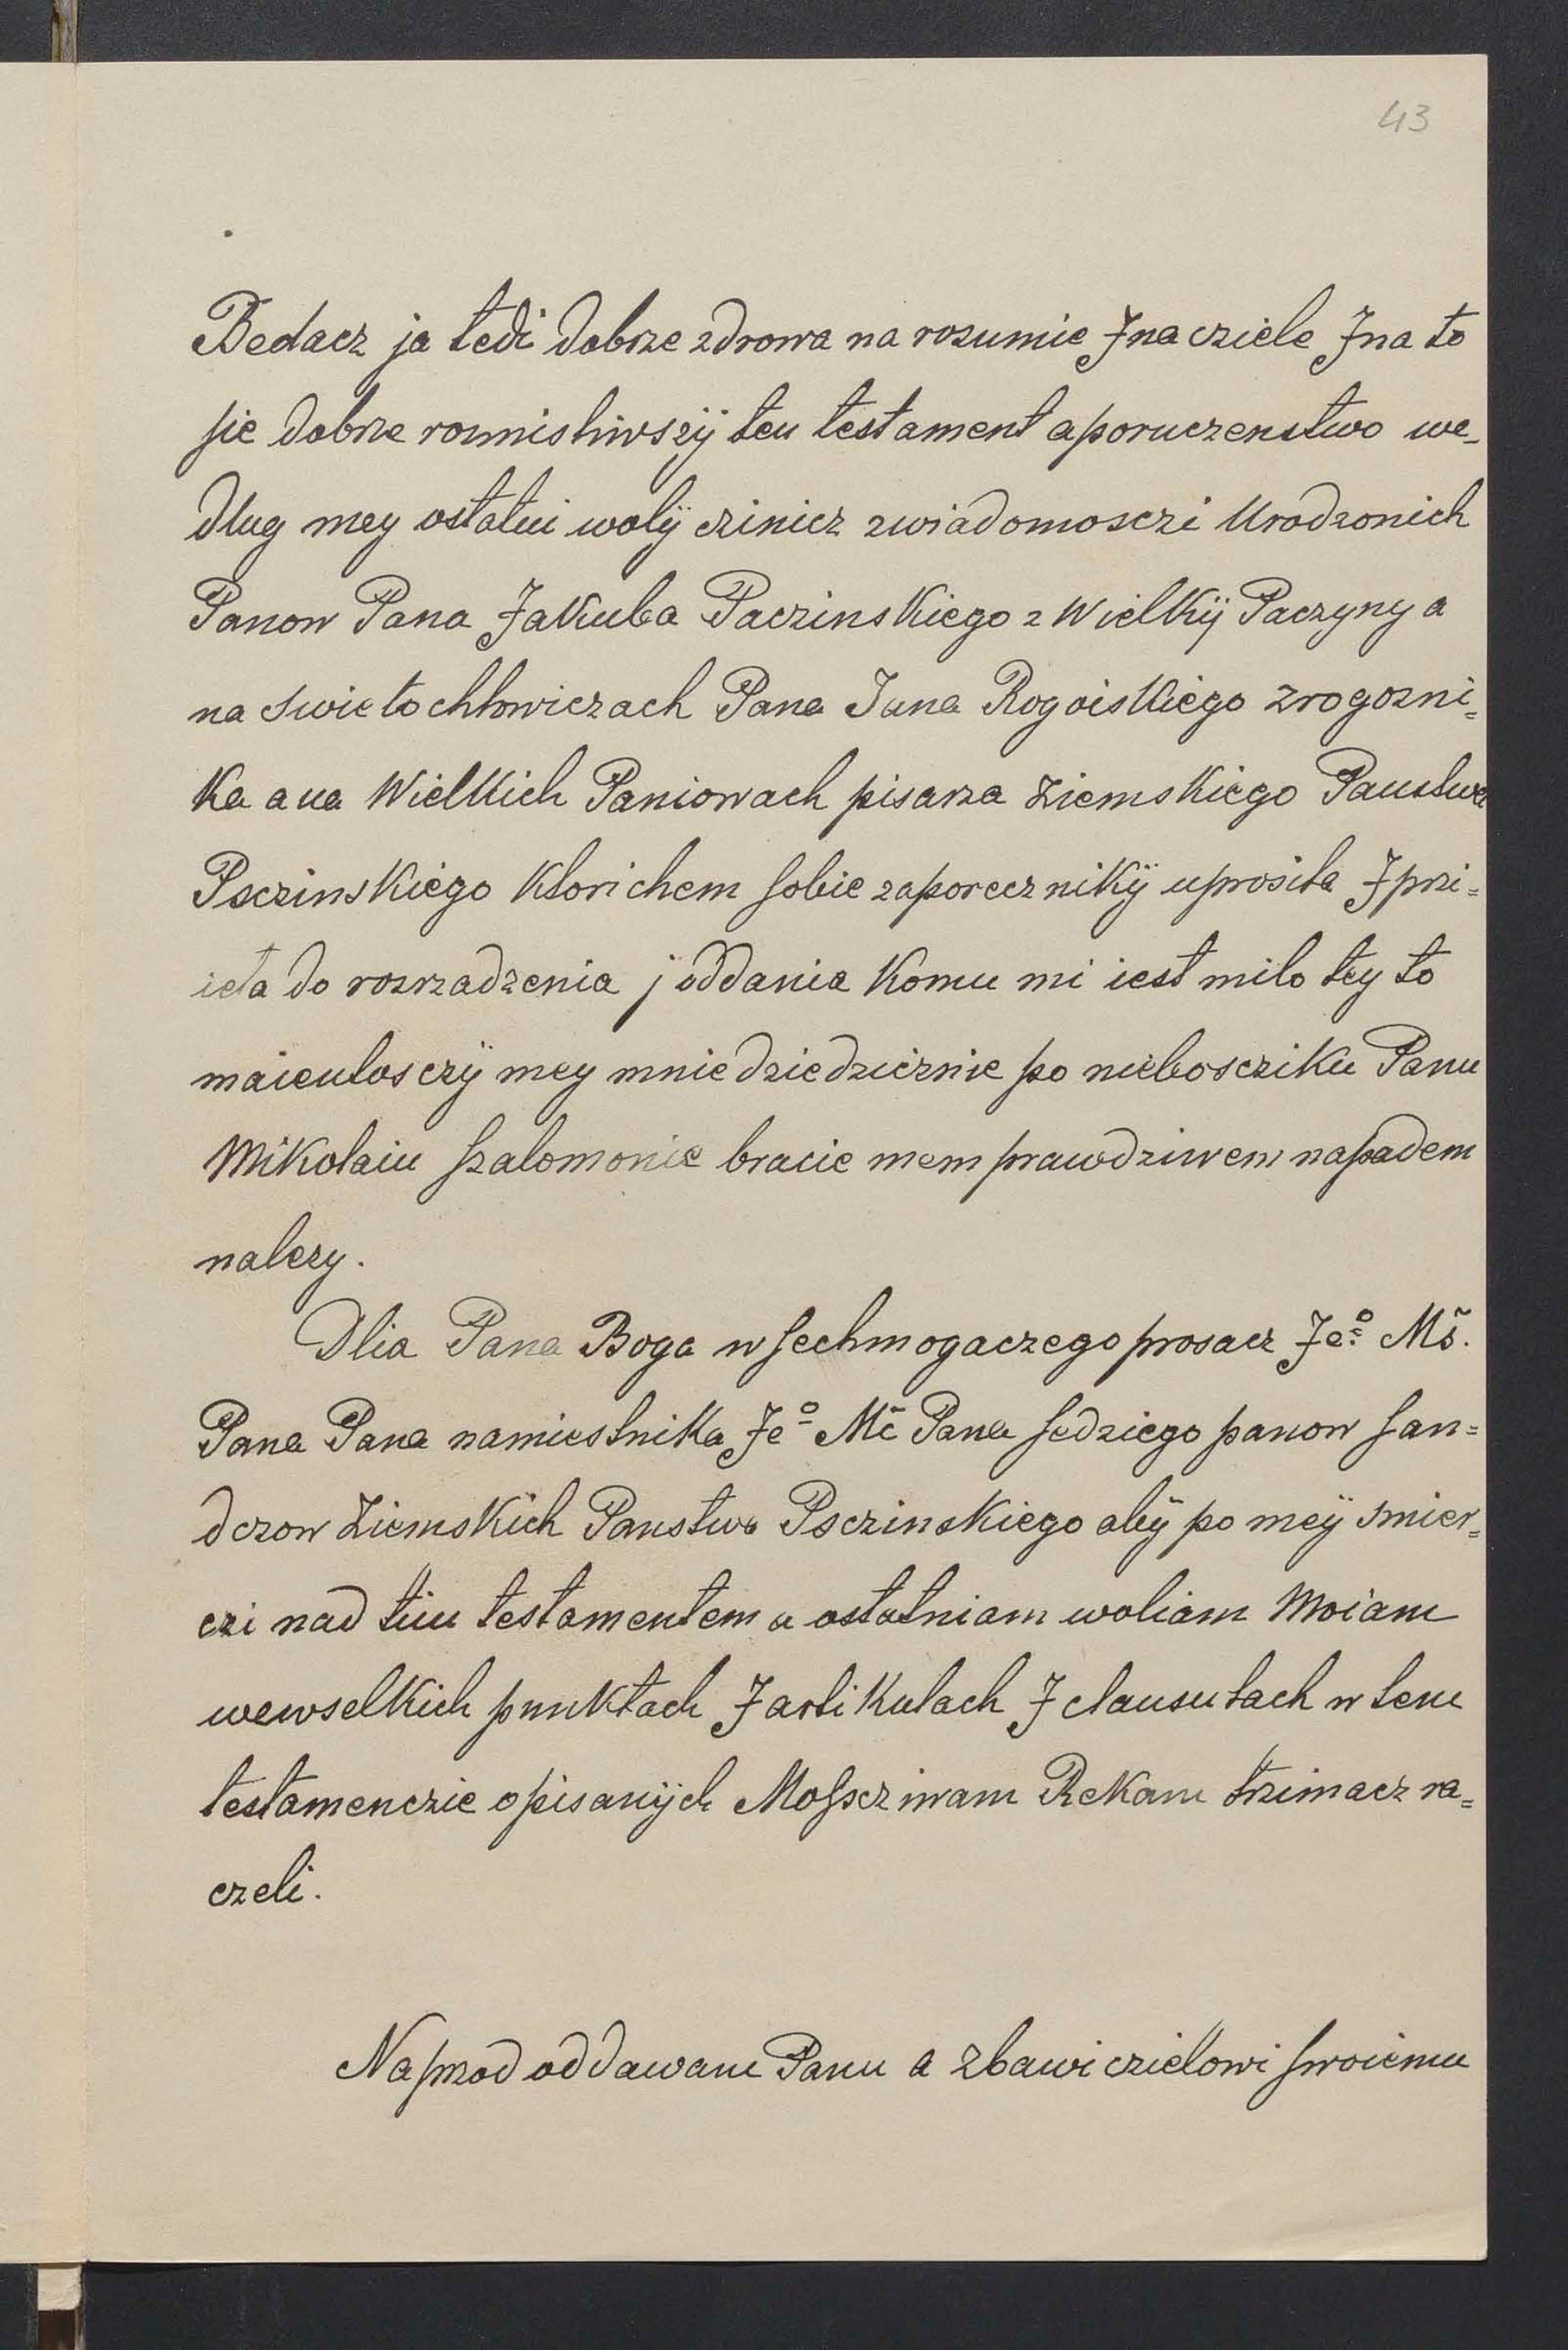 43
Bedacz ja tedi dobrze zdrowa na rozumie J na cziele J na to
sie dobrze rozmisliwszÿ ten testament a poruczenstwo we-
dlug mey ostatni wolÿ czinicz z wiadomosczi Urodzonich
Panow Pana Jakuba Paczinskiego z Wielkÿ Paczyny a
na Swietochłowiczach Pana Jana Rogoiskiego z rogozni=
ka a na Wielkich Paniowach pisarza Ziemskiego Panstwa
Psczinskiego ktorichem sobie za porecznikÿ uprosiła J pri=
ieła do rozrzadzenia j oddania komu mi iest milo tey to
maientosczÿ mey mnie dziedzicznie po nieboscziku Panu
Mikolaiu Szalomonie bracie mem prawdziwem napadem
nalezy.
Dlia Pana Boga wsechmogaczego prosacz Jeº Mš.
Pana Pana namiestnika Jeº Mč Pana sedziego panow san=
dczow Ziemskich Panstwa Psczinskiego abÿ po meÿ smier=
czi nad tim testamentem a ostatniam woliam Moiam
wewselkich punktach J artikulach J clausulach w tem
testamenczie opisanÿch Mossczinam Rekam trzimacz ra=
czeli.
Naprzod oddawam Panu a Zbawiczielowi swoiemu